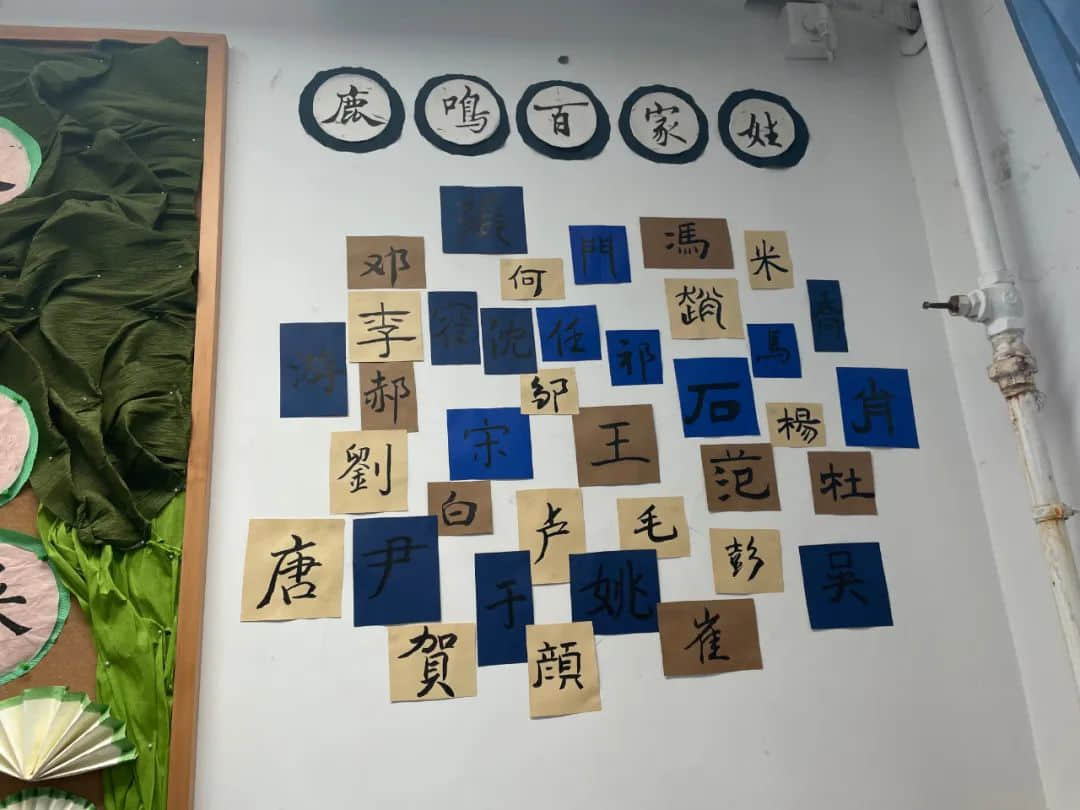 鹿鳴百家姓
張
邓
何
門
馮
米
李
沈
任
祁
趙
馬
游
郝
邹
宋
王
石
楊
肖
劉
白
卢
毛
范
杜
唐
尹
于
姚
彭
吴
賀
顔
崔